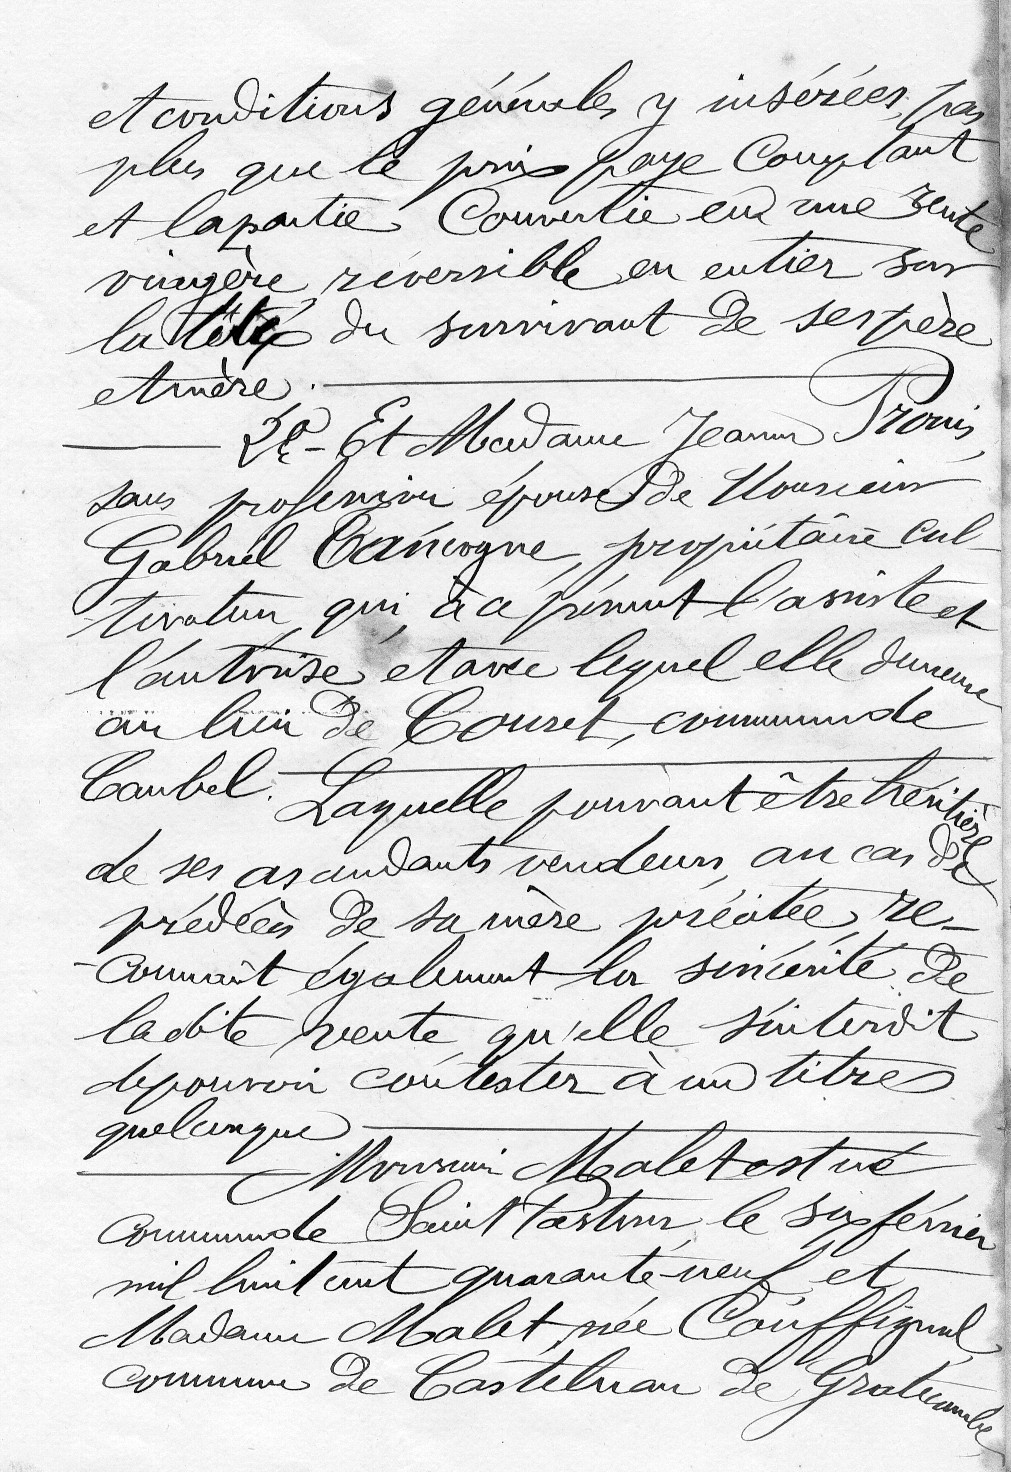 et conditions générales y insérées, pas
plus que le prix payé comptant
et la partie convertie en une rente
viagère réversible en entier sur
la tête du survivant de ses père
et mère.
2e - Et Madame Jeanne Prouis,
sans profession épouse de Monsieur
Gabriel Cancogne, propriétaire cul-
-tivateur qui, à ce présent l'assiste et
l'autorise et avec lequel elle demeure
au lieu de Couret, commune de
Caubel.
Laquelle pouvant être héritière
de ses ascendants vendeurs, au cas de
prédécès de sa mère précitée, re-
-connait également la sincérité de
la dite vente qu'elle s'interdit
de pouvoir contester à un titre
quelconque
Monsieur Malet est né
commune de Saint Pastour, le six février
mil huit cent quarante-neuf, et
Madame Malet, née Couffignal,
commune de Castelnau de Gratecambe